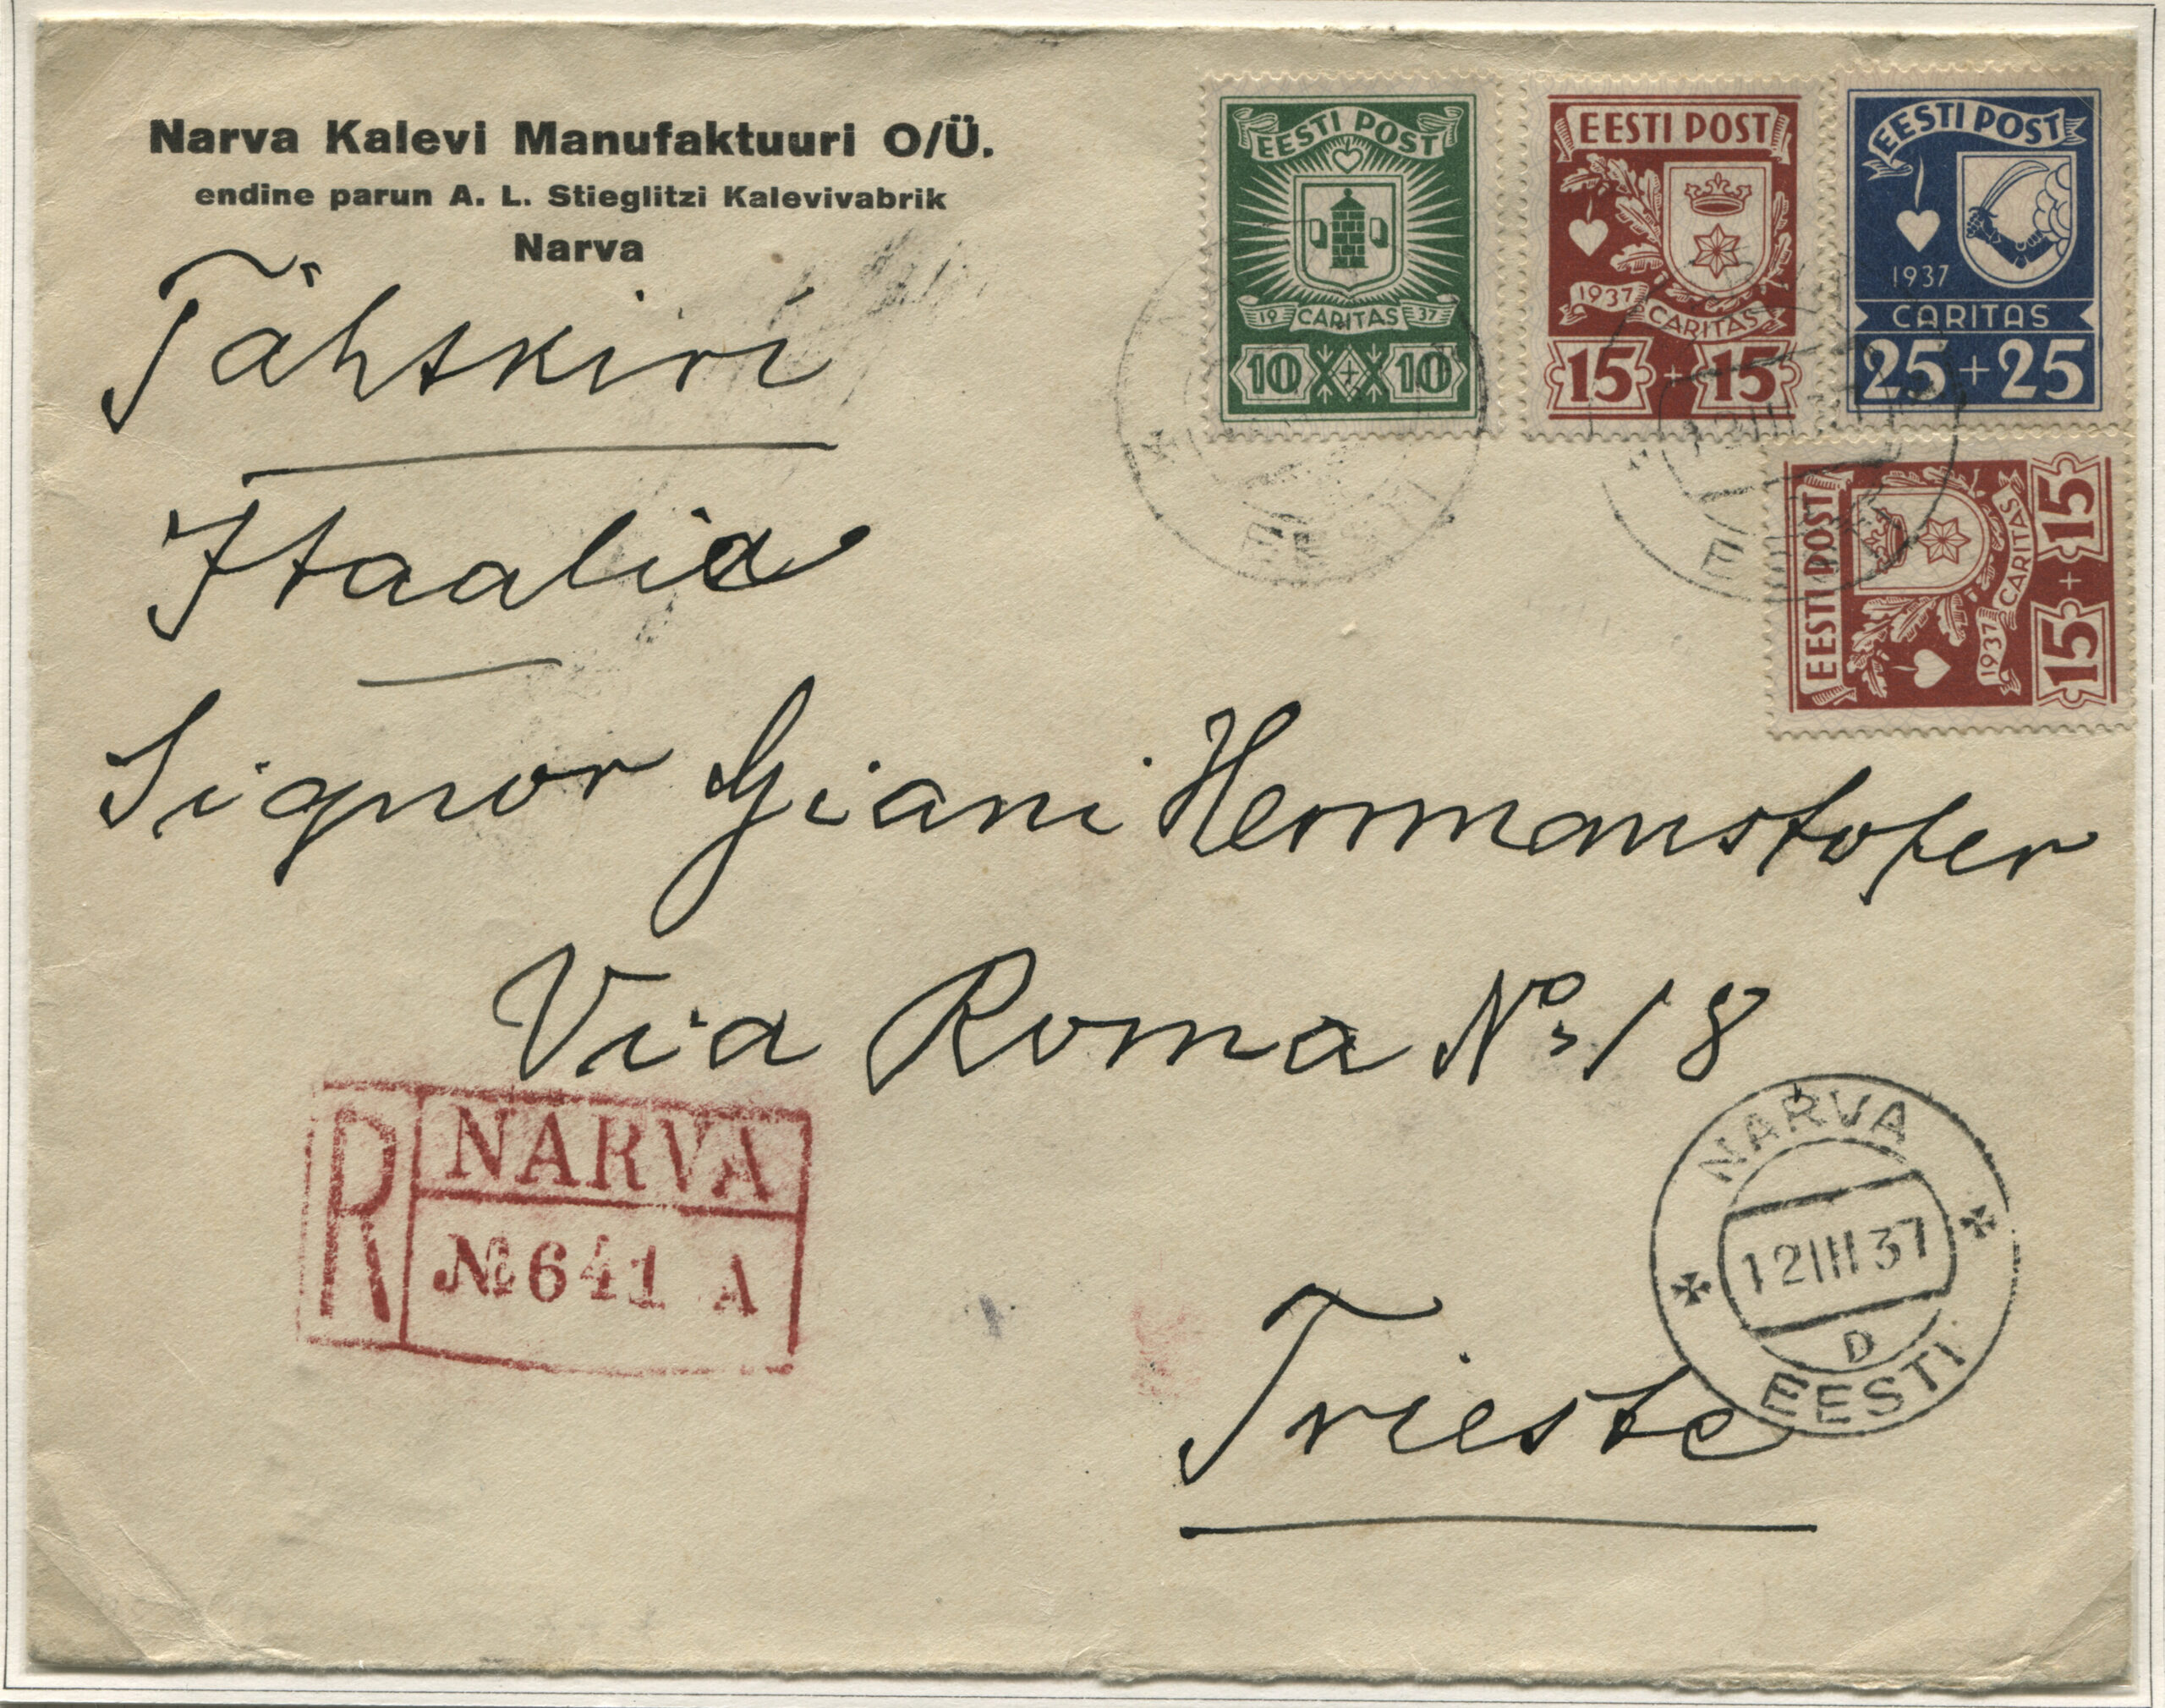 Narva Kalevi Manufaktuuri O/Ü.
endine parun A. L. Stieglitzi Kalevivabrik
Narva
Tähtkiri
Itaalia
EESTI POST
19 CARITAS 37
10 + 10
EESTI POST
1937
CARITAS
15 + 15
EESTI POST
1937
CARITAS
25 + 25
EESTI POST
1937
CARITAS
15 + 15
EESTI
Signor Giani Hermanstofer
Via Roma No 18
R
NARVA
№ 641 A
NARVA
12 III 37
D
EESTI
Trieste